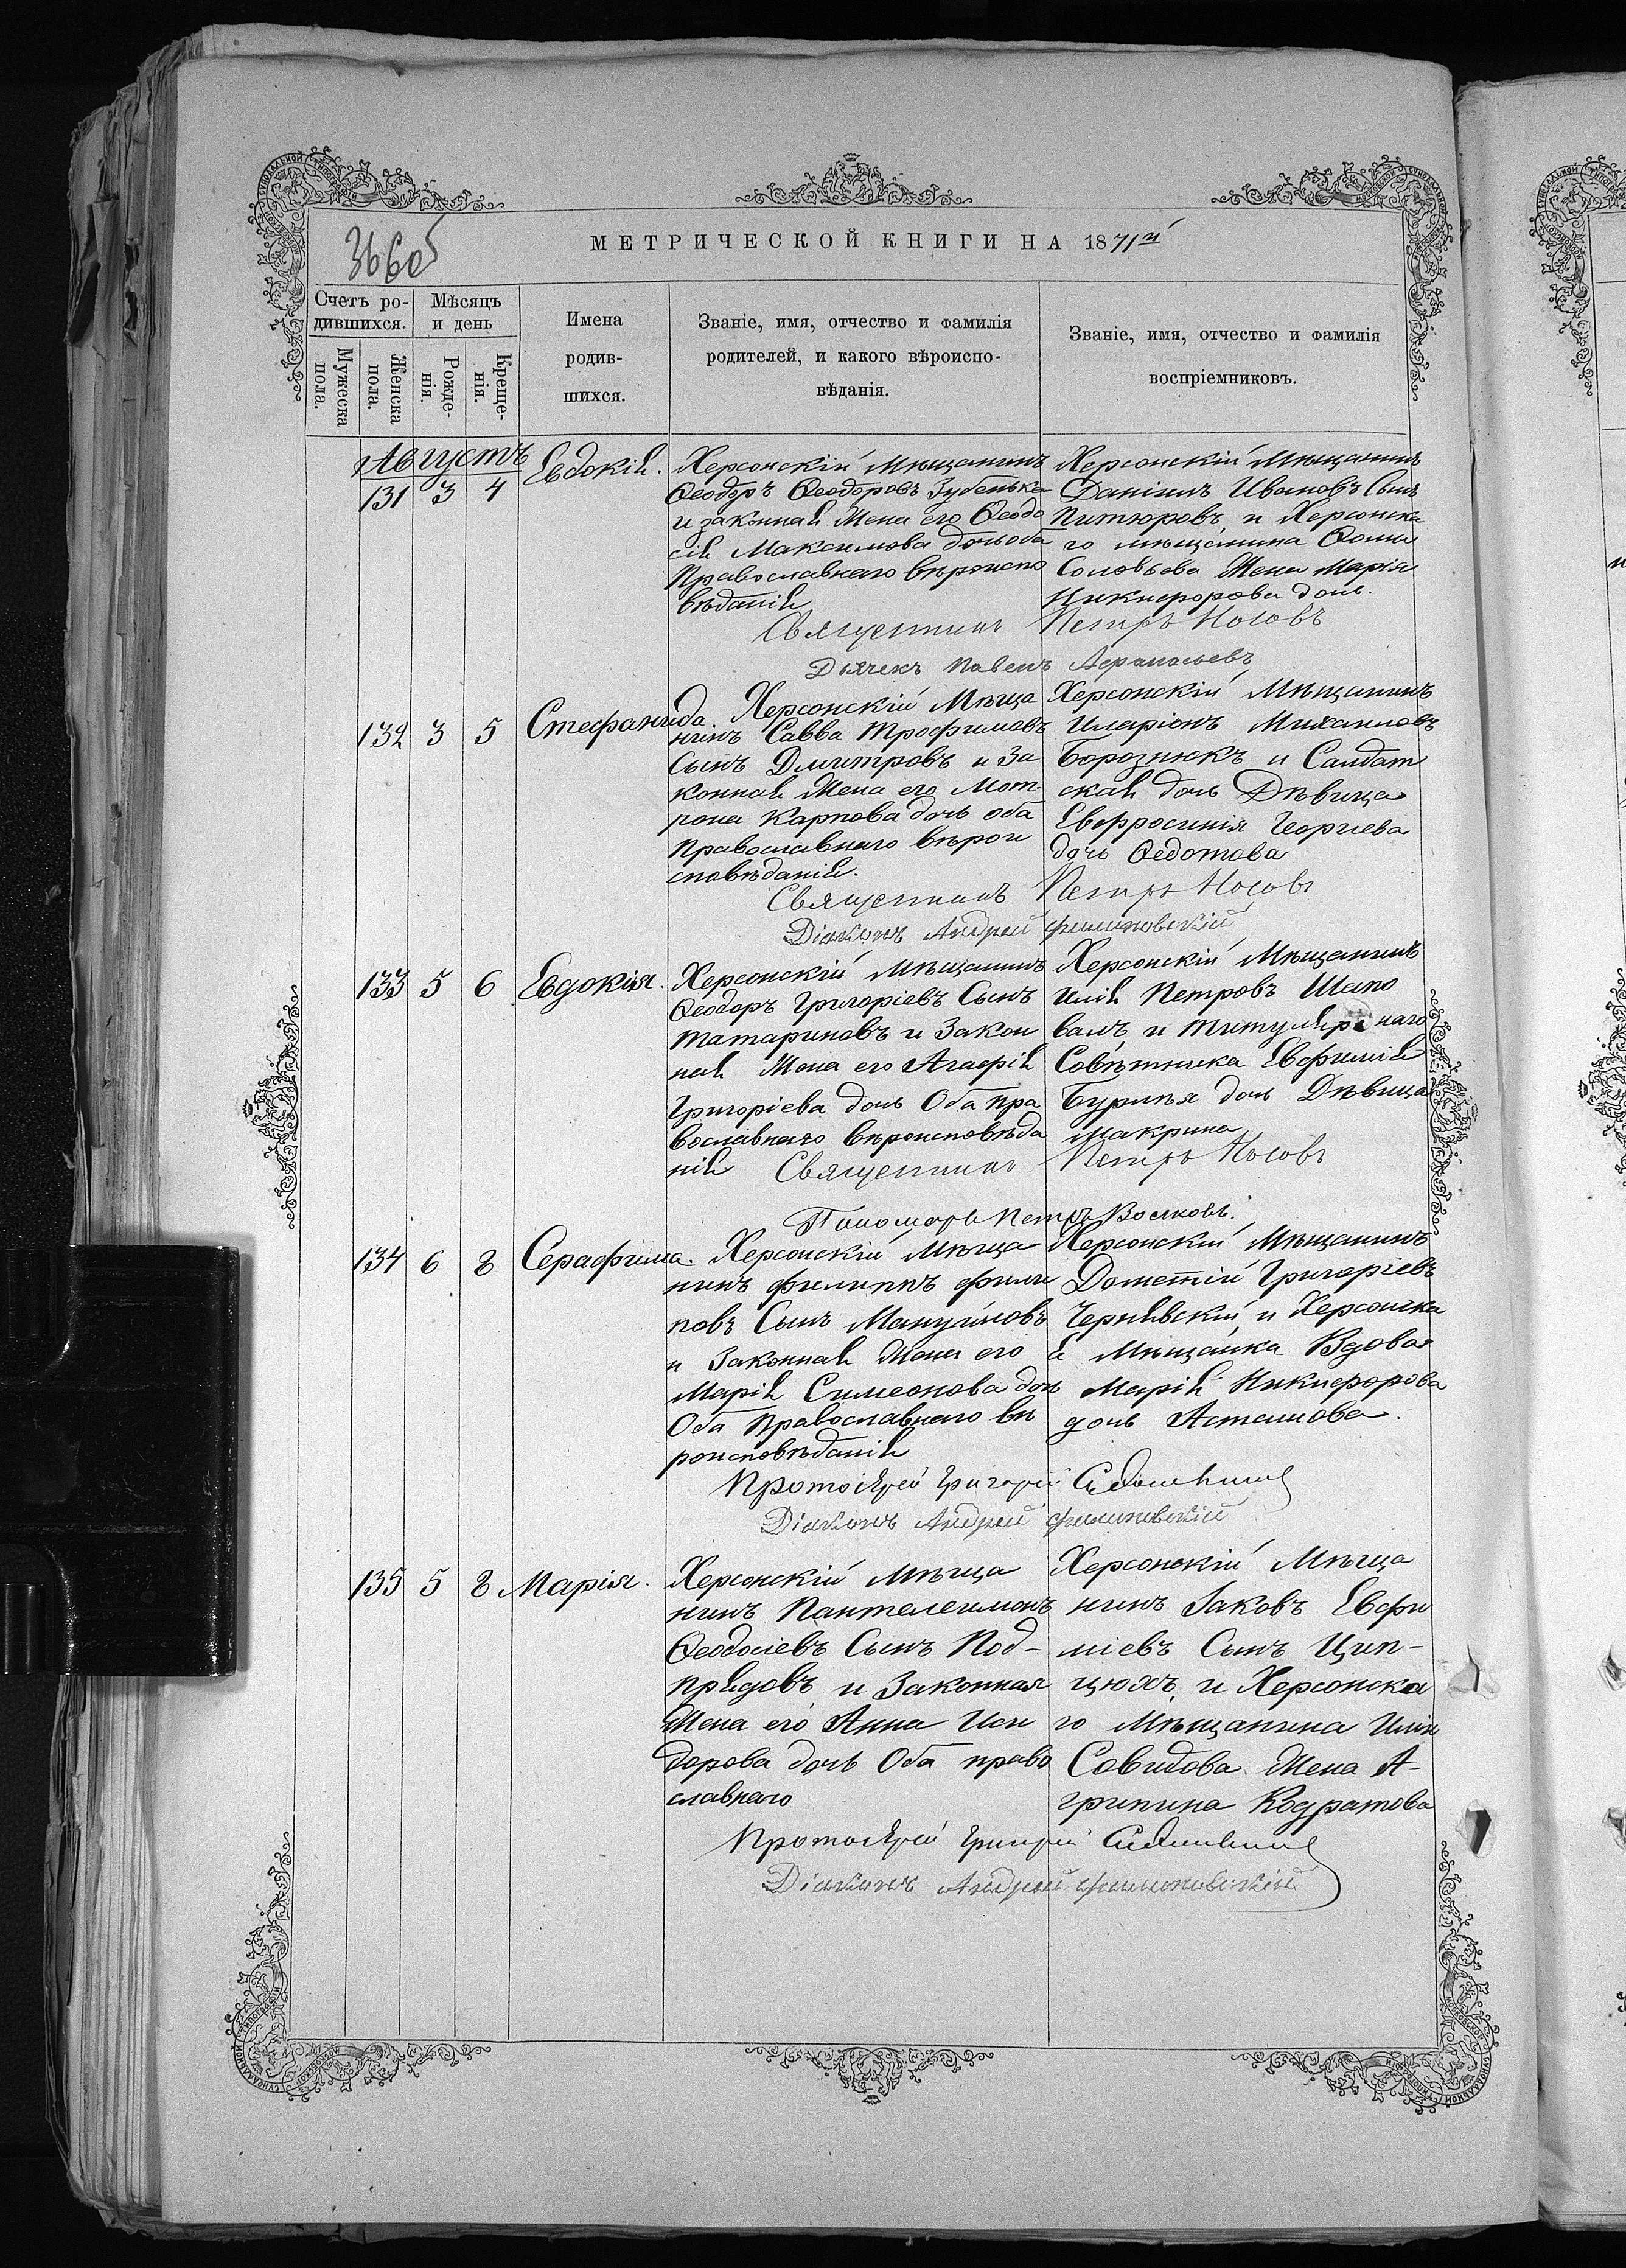 366об
МЕТРИЧЕСКОЙ КНИГИ НА 1871й
Счетъ ро-
дившихся.
Мѣсяцъ
и день
Мужеска
пола.
Женска
пола.
Рожде-
нія.
Креще-
нія.
Имена
родив-
шихся.
Званіе, имя, отчество и фамилія
родителей, и какого вѣроиспо-
вѣданія.
Званіе, имя, отчество и фамилія
воспріемниковъ.
Августъ
131 3 4
Евдокія.
Херсонскій Мѣщанинъ
Ѳеодоръ Ѳеодоровъ Зубенько
и законная Жена его Ѳеодо
сія Максимова дочь оба
Православнаго вѣроиспо
вѣданія
Херсонскій Мѣщанинъ
Даніилъ Ивановъ Сынъ
Питюровъ и Херсонска
го мѣщанина Ѳомы
Соловьева Жена Марія
Никифорова дочь.
Священникъ Петръ Носовъ
Дьячекъ Павелъ Афанасьевъ
132 3 5
Стефанида.
Херсонскій Мѣща
нинъ Савва Трофимовъ
Сынъ Дмитровъ и За
конная Жена его Мот-
рона Карпова дочь оба
Православнаго вѣрои
сповѣданія.
Херсонскій Мѣщанинъ
Иларіонъ Михаиловъ
Борознюкъ и Салдат
ская дочь Дѣвица
Евфросинія Георгіева
дочь Ѳедотова
Священникъ Петръ Носовъ
Діаконъ Андрей
133 5 6
Евдокія.
Херсонскій Мѣщанинъ
Ѳеодоръ Григоріевъ Сынъ
Татариновъ и Закон
ная Жена его Агафія
Григоріева дочь Оба пра
вославнаго вѣроисповѣда
нія
Херсонскій Мѣщанинъ
Илія Петровъ Шапо
валъ и Титулярнаго
Совѣтника Евфимія
дочь Дѣвица
Макрина
Священникъ Петръ Носовъ
Пономарь Петръ Волковъ.
134 6 8
Серафима.
Херсонскій Мѣща
нинъ Филиппъ Фили
повъ Сынъ Мануйловъ
и Законная Жена его
Марія Симеонова дочь
Оба Православнаго вѣ
роисповѣданія
Херсонскій Мѣщанинъ
Дометій Григоріевъ
Чернявскій и Херсонска
я Мѣщанка Вдова
Марія Никифорова
дочь Асташова.
Протоіерей Григорій
Діаконъ Андрей
135 5 8
Марія.
Херсонскій Мѣща
нинъ Пантелеимонъ
Ѳеодосіевъ Сынъ Под-
прядовъ и Законная
Жена его Анна Иси
дорова дочь Оба право
славнаго
Херсонскій Мѣща
нинъ Іаковъ Евфи
міевъ Сынъ Цип-
цюхъ и Херсонска
го Мѣщанина Иліи
Савидова Жена А-
грипина Кодратова
Протоіерей Григорій
Діаконъ Андрей